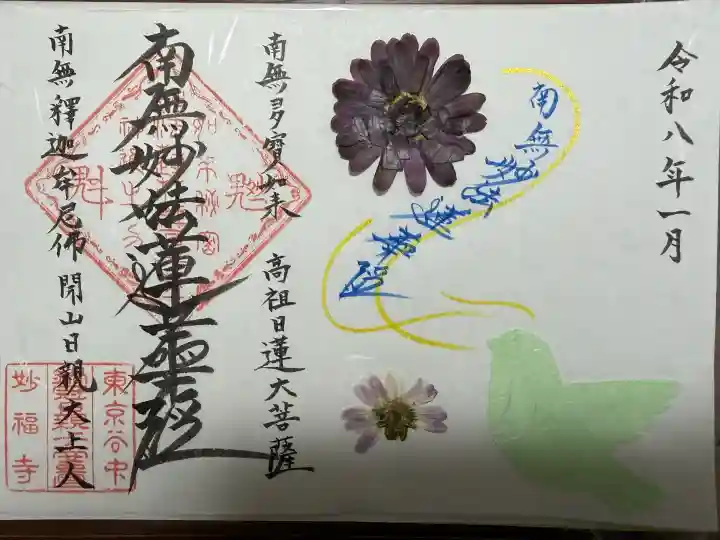 令和八年一月
南無妙法蓮華経
南無多寶如来 高祖日蓮大菩薩
南無妙法蓮華経
南無釋迦牟尼佛 開山日親大上人
魁
魁
東京谷中
妙福寺